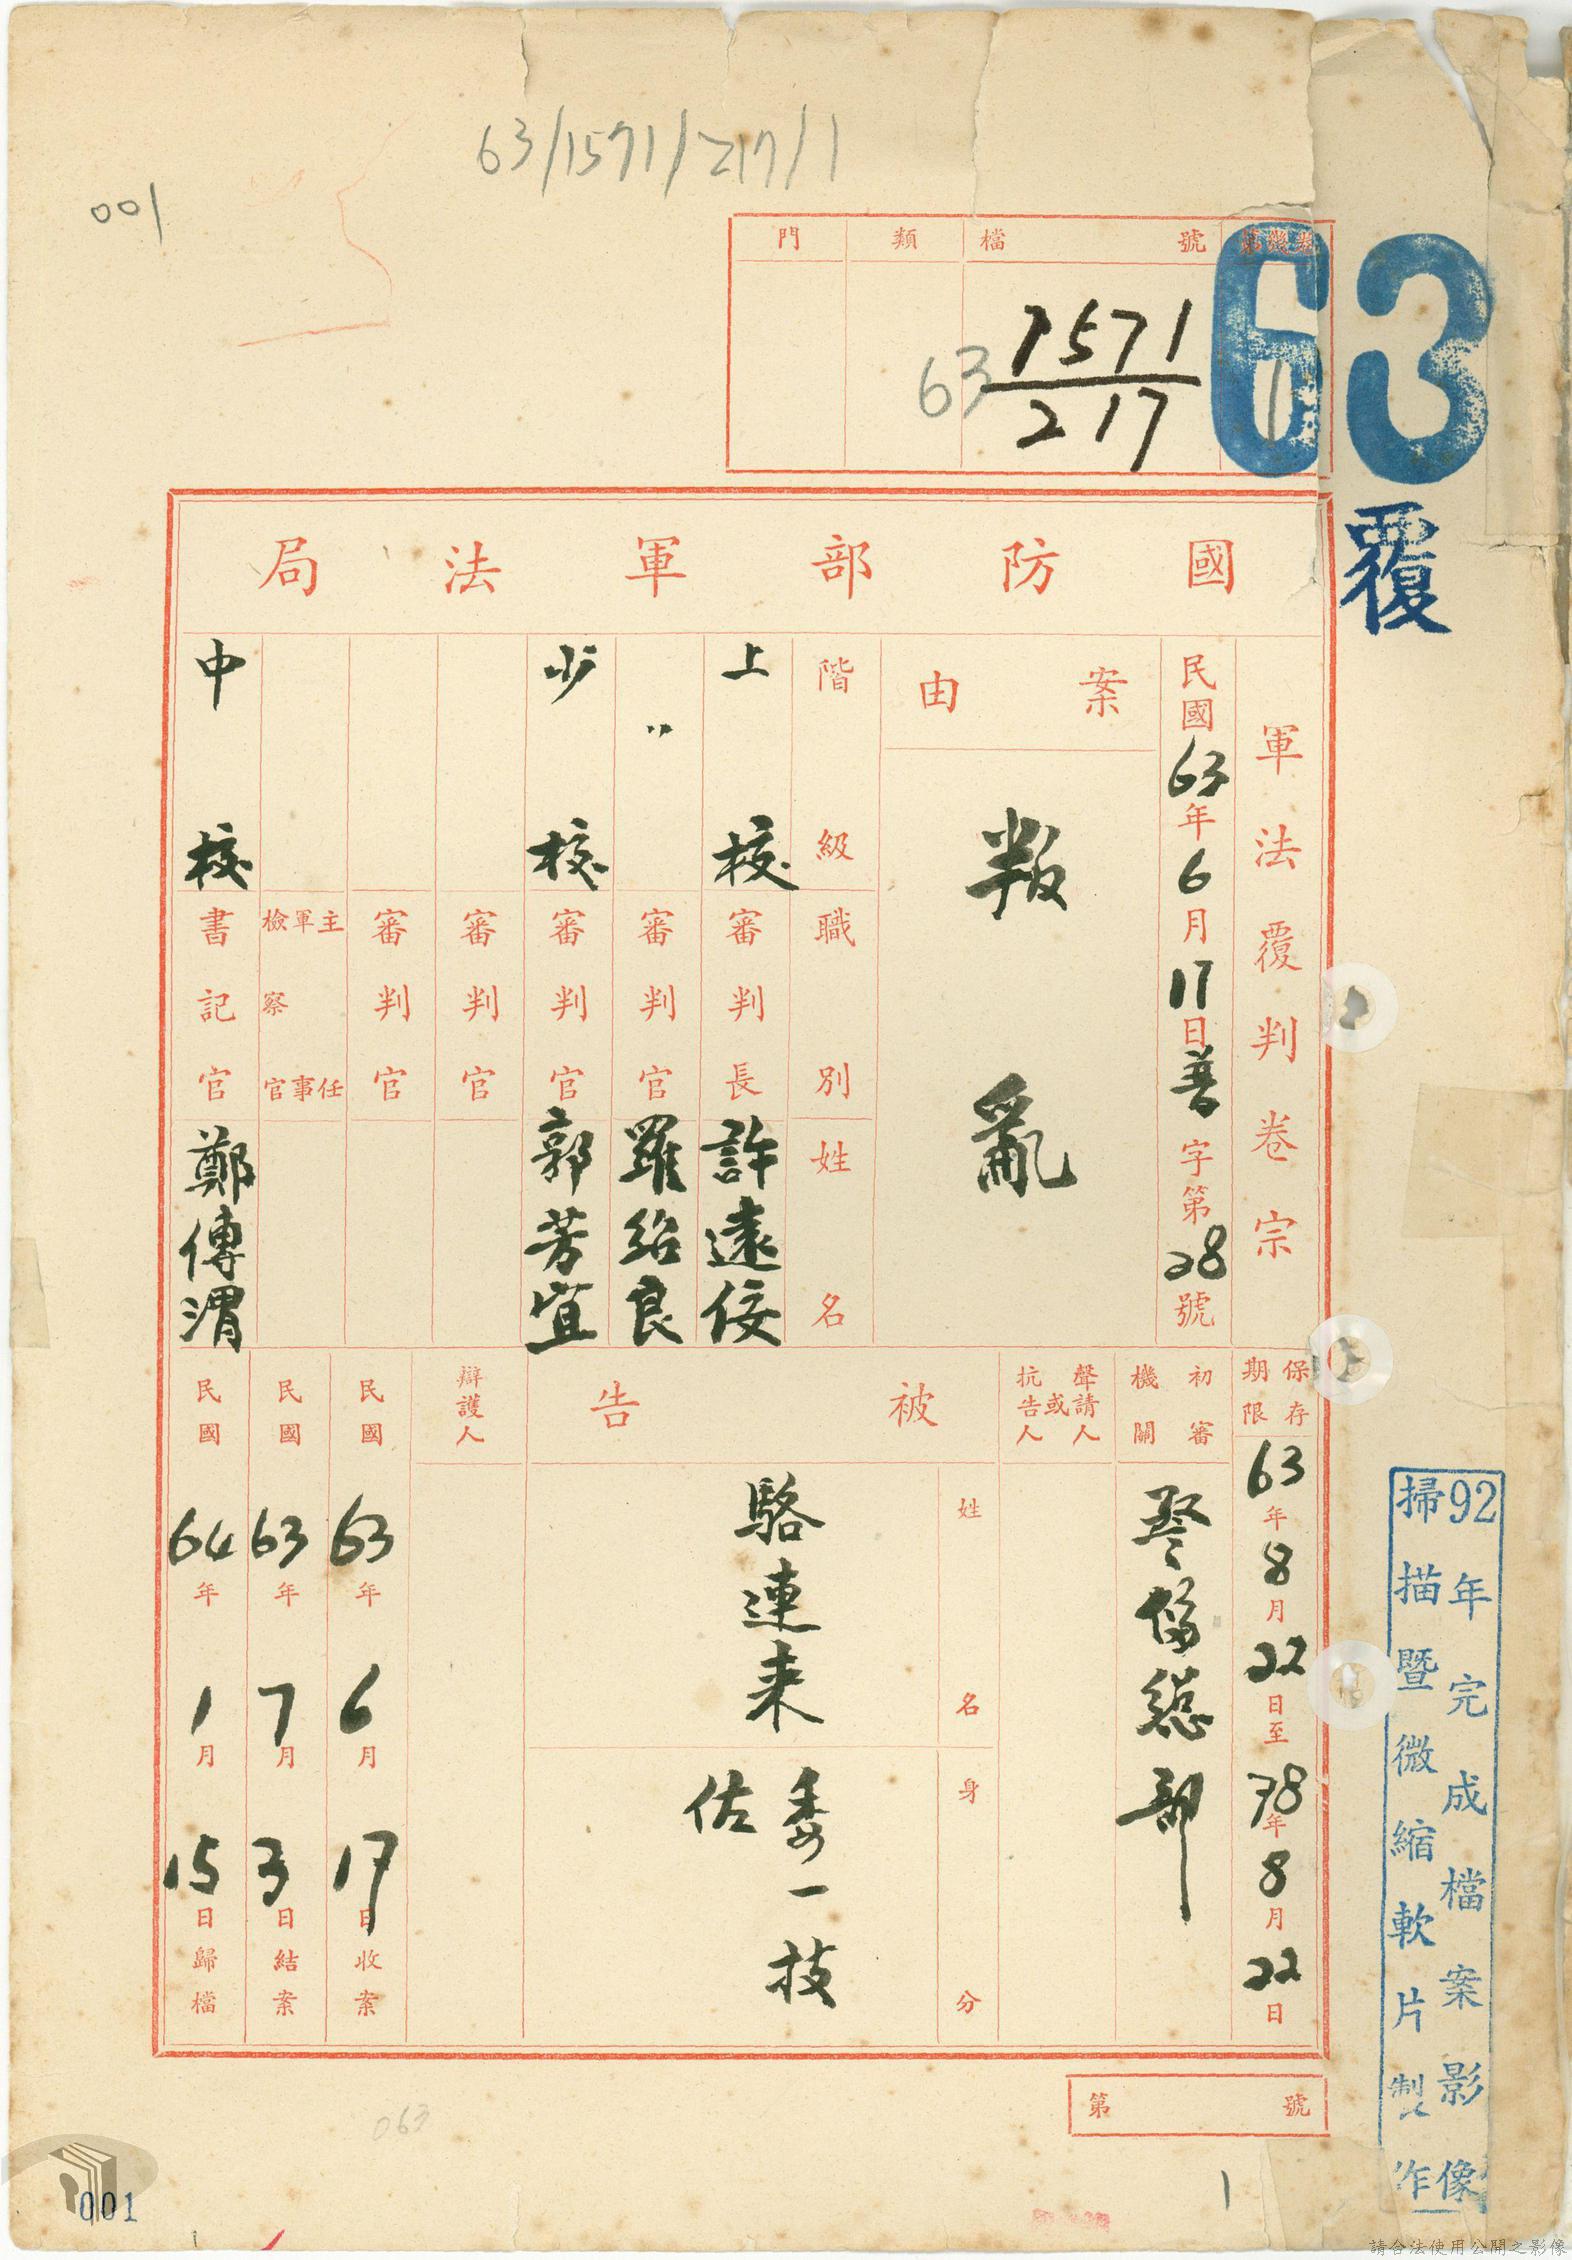 63/1571/217/1
001
門 類 檔號 第幾卷
63 1571/217
1
63
覆
國防部軍法局
軍法覆判卷宗
民國63年6月17日普字第28號
案由
叛亂
階級 職別 姓名
上校 審判長 許遠佞
〃 審判官 羅紹良
少校 審判官 郭芳宜
審判官
審判官
主任軍事檢察官
中校 書記官 鄭傳渭
保存期限
63年8月22日至78年8月22日
初審機關
警備總部
聲請人或抗告人
被告
姓名
駱連來
身分
委一技佐
辯護人
民國63年6月17日收案
民國63年7月3日結案
民國64年1月15日歸檔
第 號
92年完成檔案影像
掃描暨微縮軟片製作
063
1
001
請合法使用公開之影像